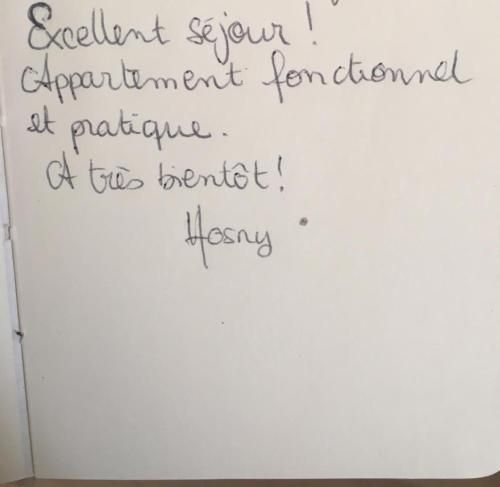 Excellent séjour !
Appartement fonctionnel
et pratique.
A très bientôt !
Hosny